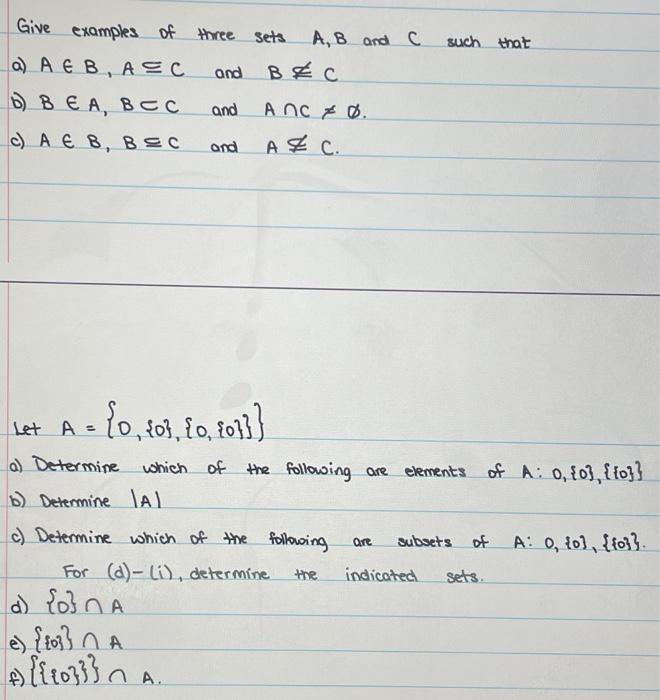 Give examples of three sets A, B and C such that
a) A ∈ B, A ⊆ C and B ⊈ C
b) B ∈ A, B ⊂ C and A ∩ C ≠ ∅.
c) A ∈ B, B ⊆ C and A ⊈ C.
Let A = {0, {0}, {0, {0}}}
a) Determine which of the following are elements of A: 0, {0}, {{0}}
b) Determine |A|
c) Determine which of the following are subsets of A: 0, {0}, {{0}}.
For (d)-(i), determine the indicated sets.
d) {0} ∩ A
e) {{0}} ∩ A
f) {{{0}}} ∩ A.